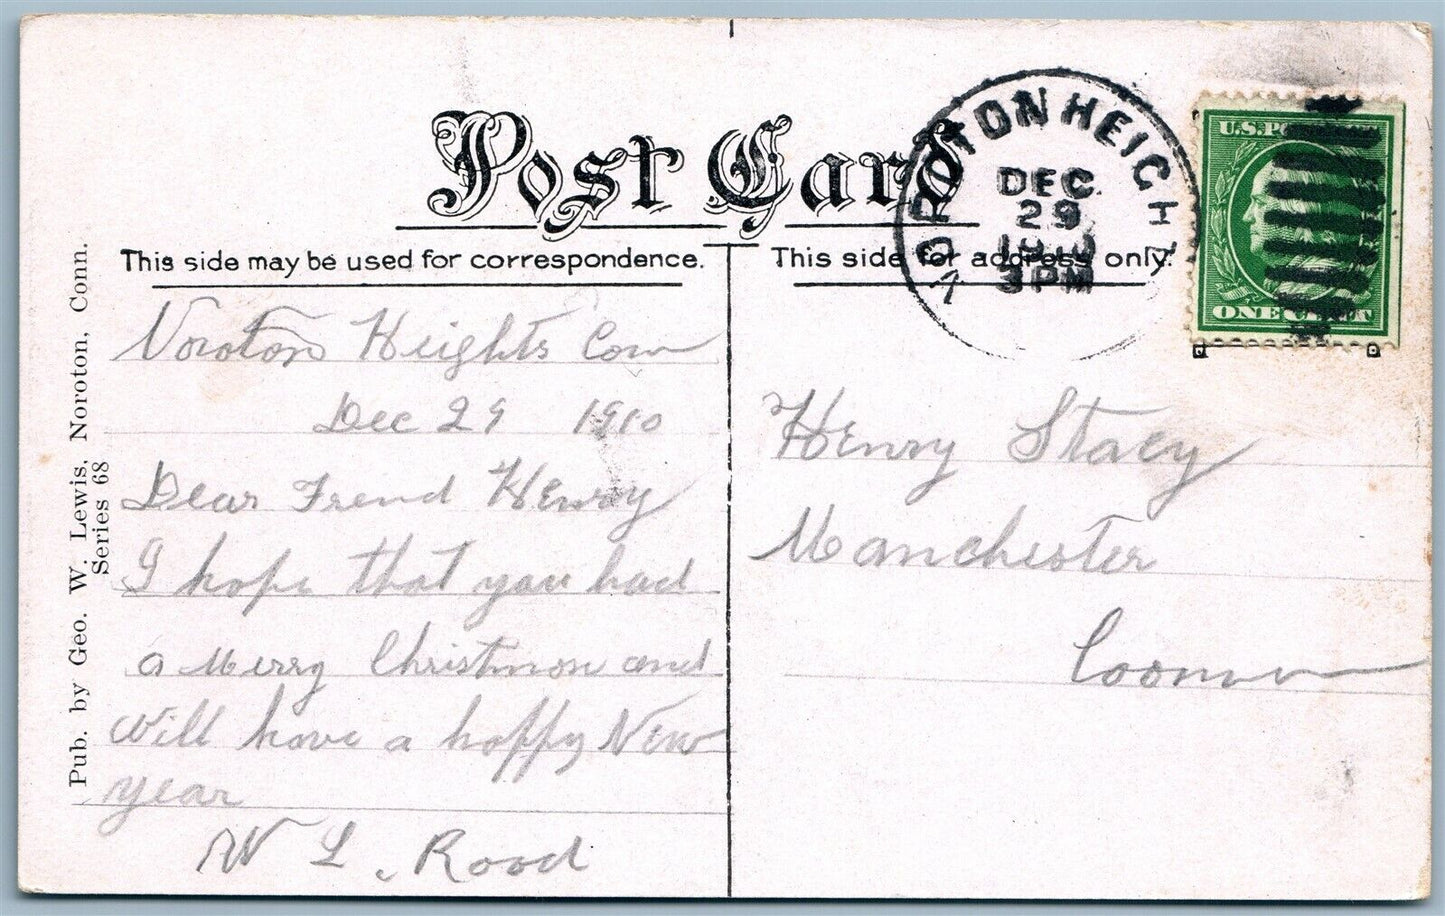 Post Card
This side may be used for correspondence.
This side for address only.
NOROTON HEIGHT
DEC
29
1910
3 PM
U.S. POSTAGE
ONE CENT
Pub. by Geo. W. Lewis, Noroton, Conn.
Series 68
Noroton Heights Conn
Dec 29 1910
Dear Frend Henry
I hope that you had
a Merry Christmas and
will have a happy New
year
W L. Rood
Henry Stacy
Manchester
Conn